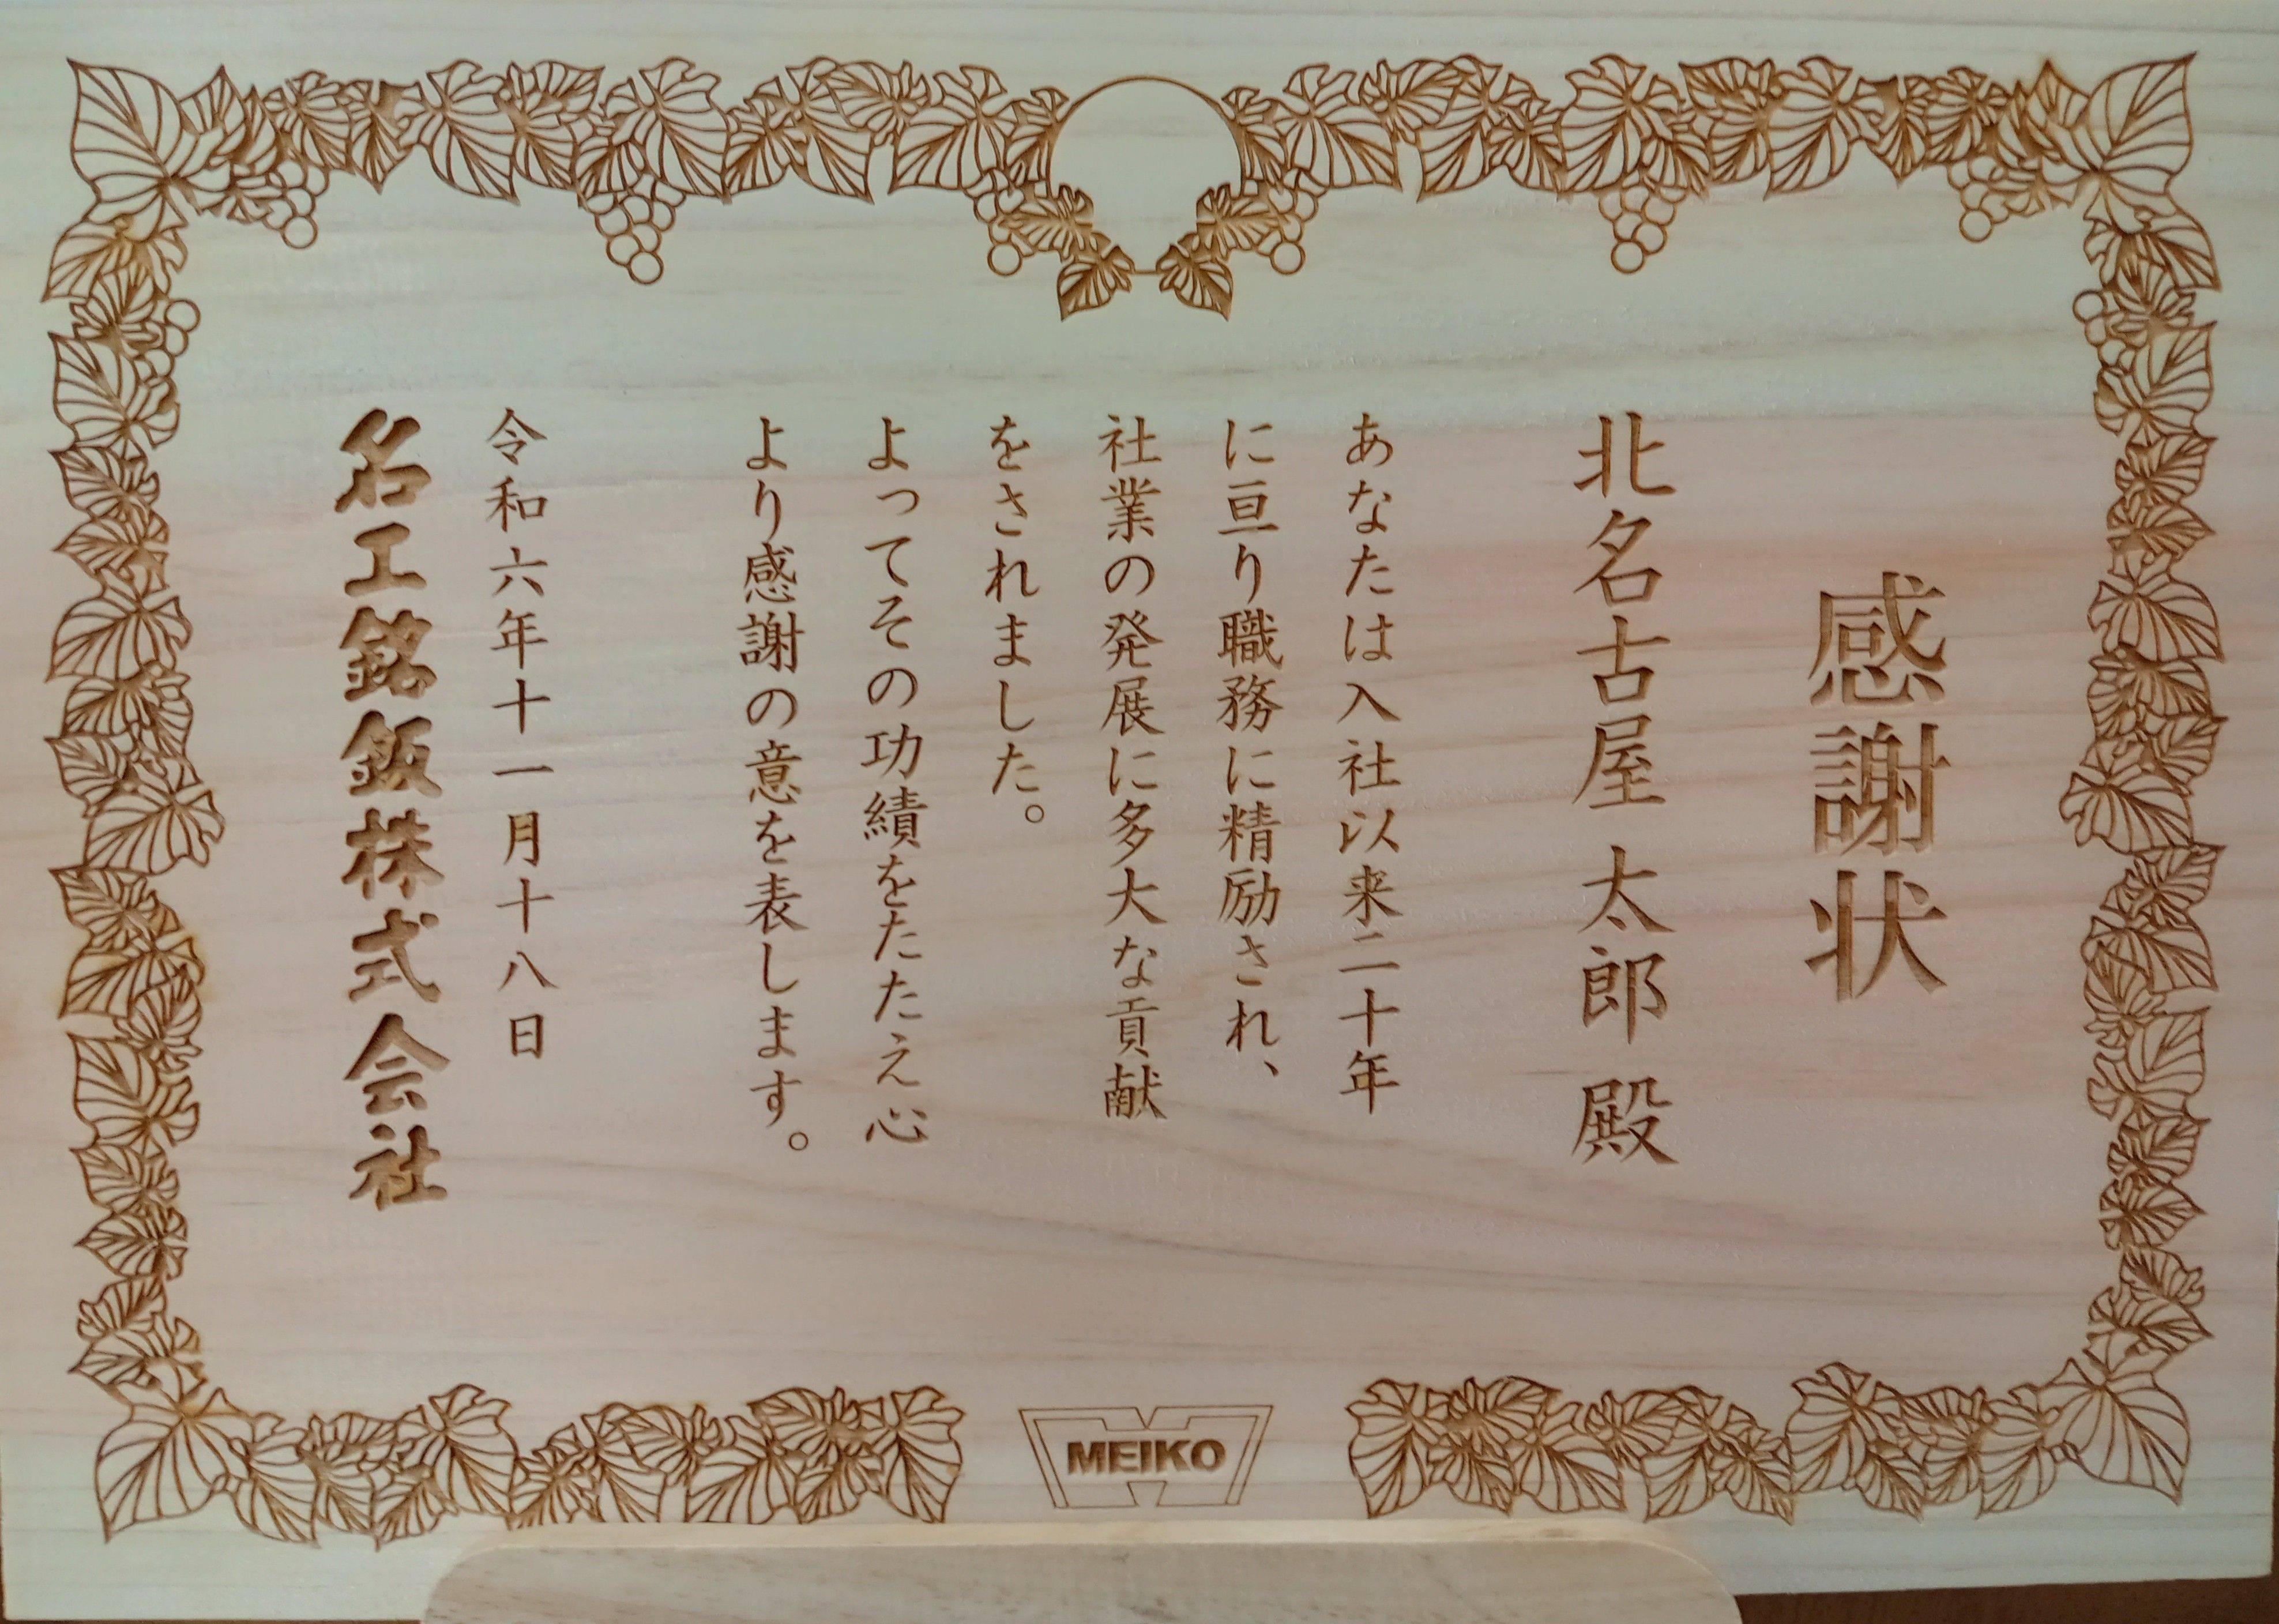 感謝状
北名古屋 太郎 殿
あなたは入社以来二十年
に亘り職務に精励され、
社業の発展に多大な貢献
をされました。
よってその功績をたたえ心
より感謝の意を表します。
令和六年十一月十八日
名工銘鈑株式会社
MEIKO